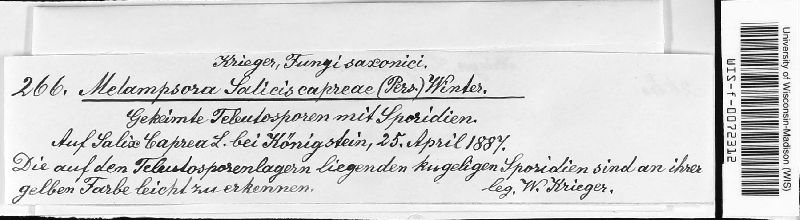 Krieger, Fungi saxonici.
266. Melampsora Salicis capreae (Pers.) Winter.
Gekeimte Teleutosporen mit Sporidien.
Auf Salix Caprea L. bei Königstein, 25. April 1887.
Die auf den Teleutosporenlagern liegenden kugeligen Sporidien sind an ihrer
gelben Farbe leicht zu erkennen.
leg. W. Krieger.
University of Wisconsin-Madison (WIS)
WIS-f-0072312